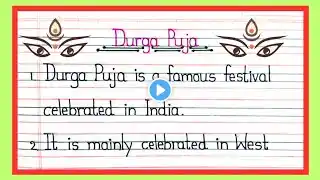 Durga Puja
1. Durga Puja is a famous festival
celebrated in India.
2. It is mainly celebrated in West